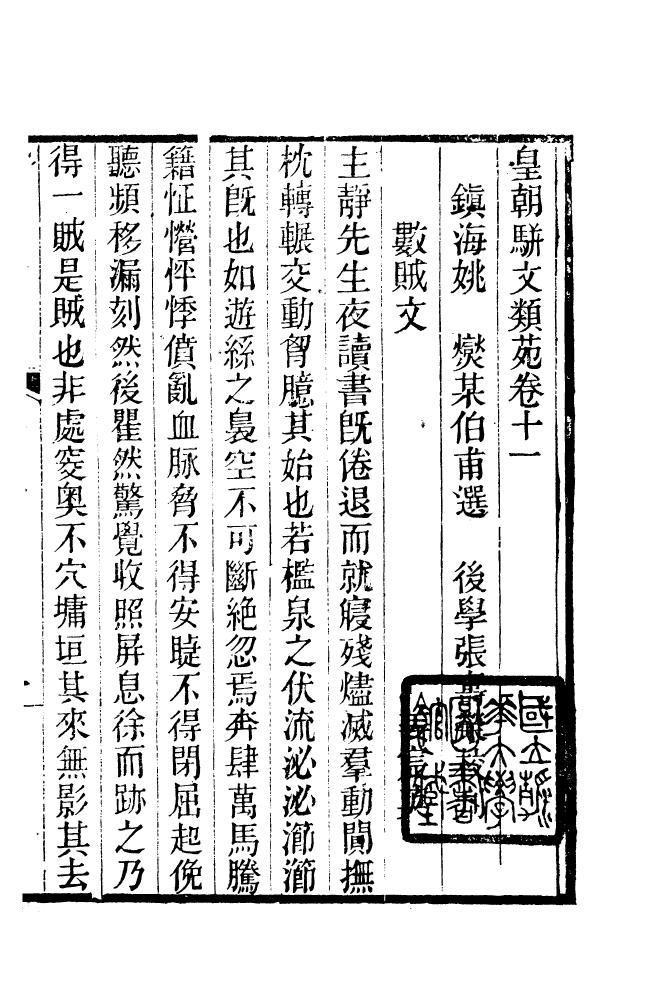 皇朝駢文類苑卷十一
鎮海姚 燮某伯甫選 後學張壽榮校刊
數賊文
主靜先生夜讀書旣倦退而就寢殘燼滅羣動閴撫
枕轉輾交動胷臆其始也若檻泉之伏流泌泌瀄瀄
其旣也如遊絲之裊空不可斷絕忽焉奔肆萬馬騰
籍怔憕怦悸僨亂血脉脅不得安睫不得閉屈起俛
聽頻移漏刻然後瞿然驚覺收照屏息徐而跡之乃
得一賊是賊也非處窔奧不穴墉垣其來無影其去